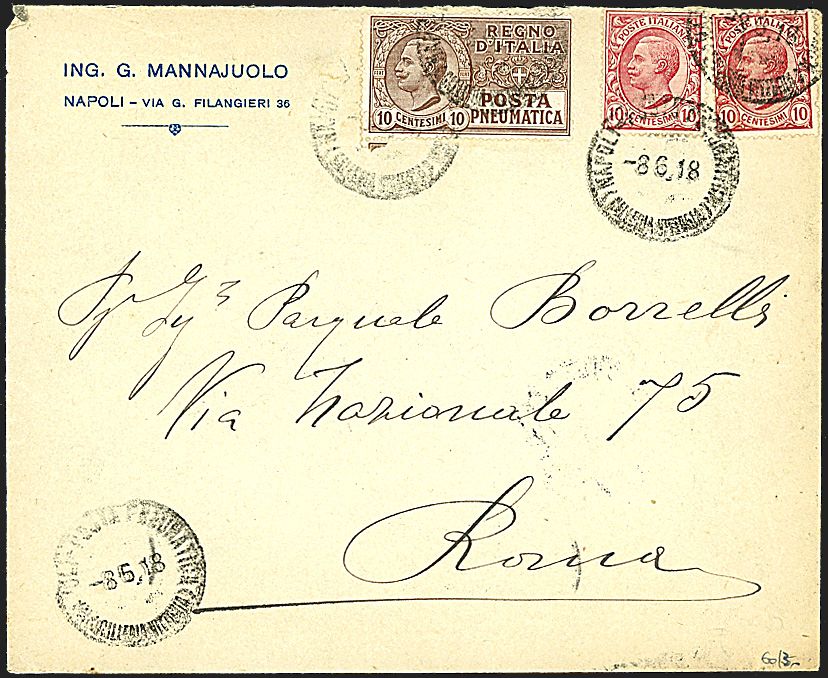 ING. G. MANNAJUOLO
NAPOLI - VIA G. FILANGIERI 36
REGNO
D'ITALIA
POSTA
PNEUMATICA
10 CENTESIMI 10
POSTE ITALIANE
10 CENTESIMI 10
POSTE ITALIANE
10 CENTESIMI 10
NAPOLI
-8.6.18
Pasquale Borrelli
Via Nazionale 75
Roma
POSTA PNEUMATICA
-8.6.18
60/3-